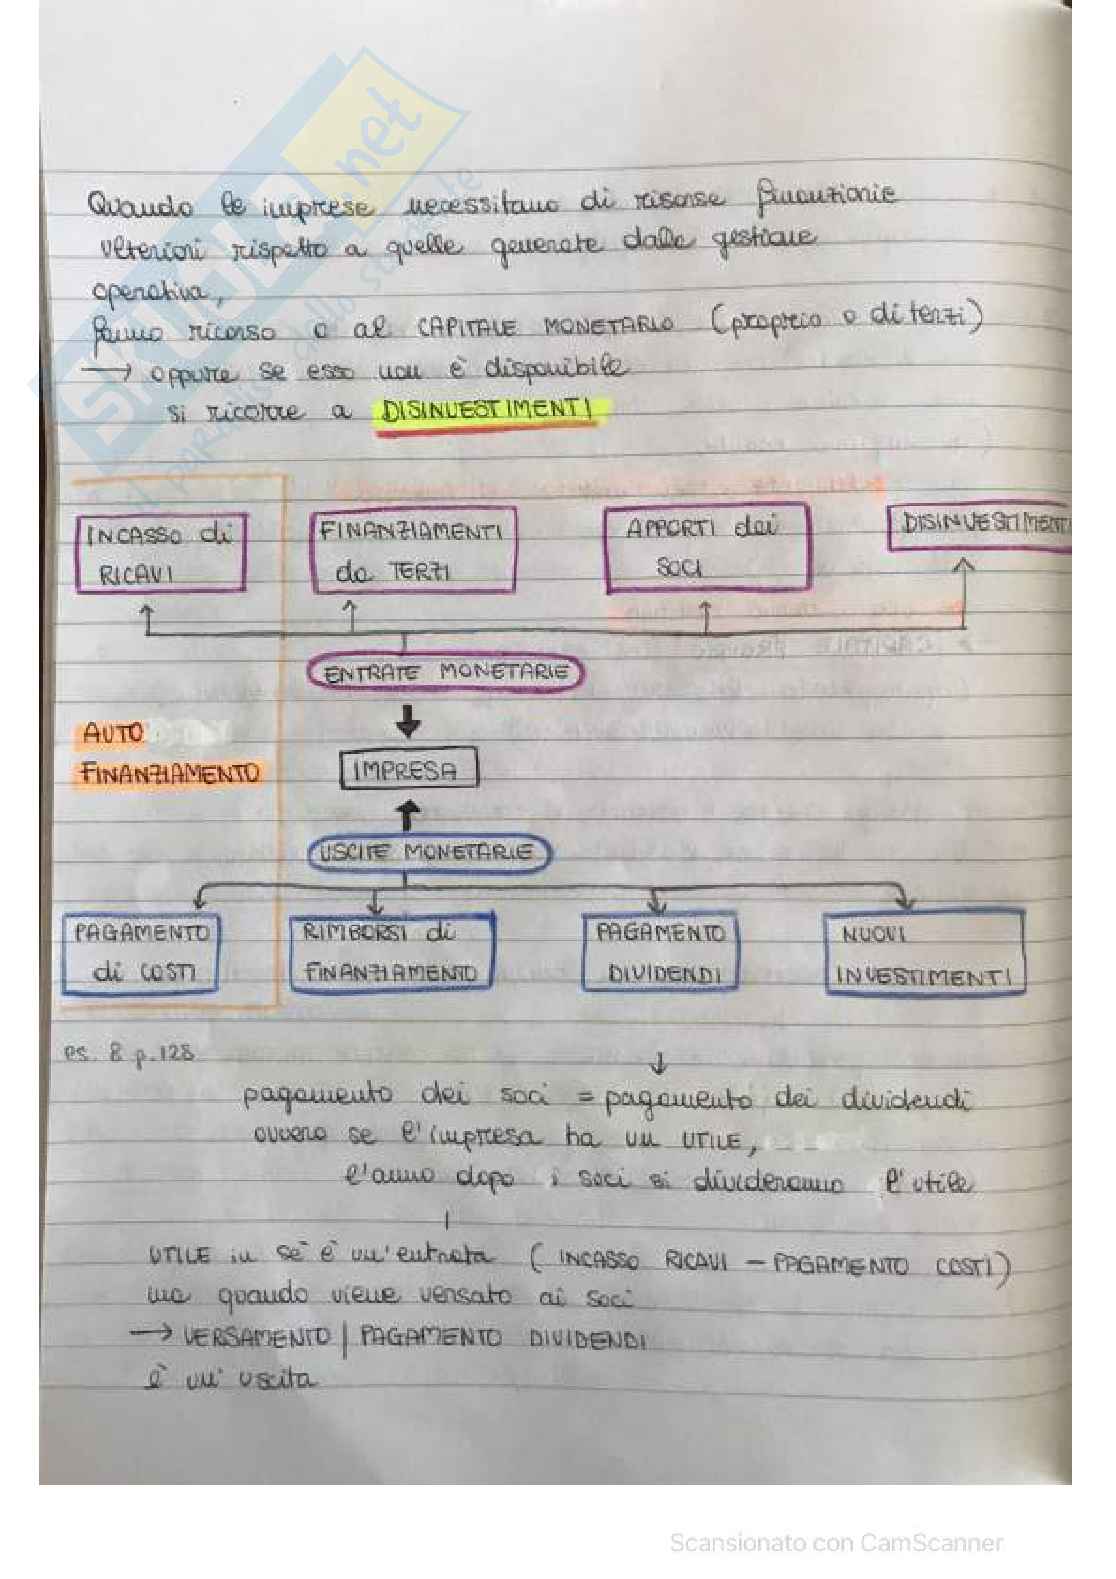 Quando le imprese necessitano di risorse finanziarie
ulteriori rispetto a quelle generate dalla gestione
operativa,
fanno ricorso o al CAPITALE MONETARIO (proprio o di terzi)
→ oppure se esso non è disponibile
si ricorre a DISINVESTIMENTI
INCASSO di RICAVI
FINANZIAMENTI da TERZI
APPORTI dei SOCI
DISINVESTIMENTI
ENTRATE MONETARIE
AUTO
FINANZIAMENTO
IMPRESA
USCITE MONETARIE
PAGAMENTO di COSTI
RIMBORSI di FINANZIAMENTO
PAGAMENTO DIVIDENDI
NUOVI INVESTIMENTI
es. 8 p.128
pagamento dei soci = pagamento dei dividendi
ovvero se l'impresa ha un UTILE,
l'anno dopo i soci si divideranno l'utile
UTILE in sé è un'entrata (INCASSO RICAVI - PAGAMENTO COSTI)
ma quando viene versato ai soci
→ VERSAMENTO | PAGAMENTO DIVIDENDI
è un'uscita
SKUOLA.net
Scansionato con CamScanner